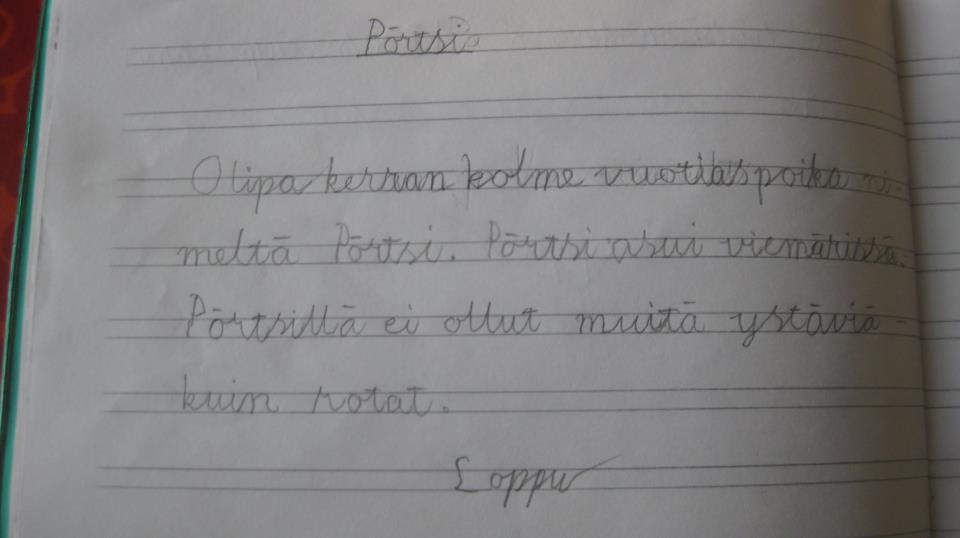 Pörtsi
Olipa kerran kolme vuotias poika ni-
meltä Pörtsi. Pörtsi asui viemärissä.
Pörtsillä ei ollut muita ystäviä
kuin rotat.
Loppu